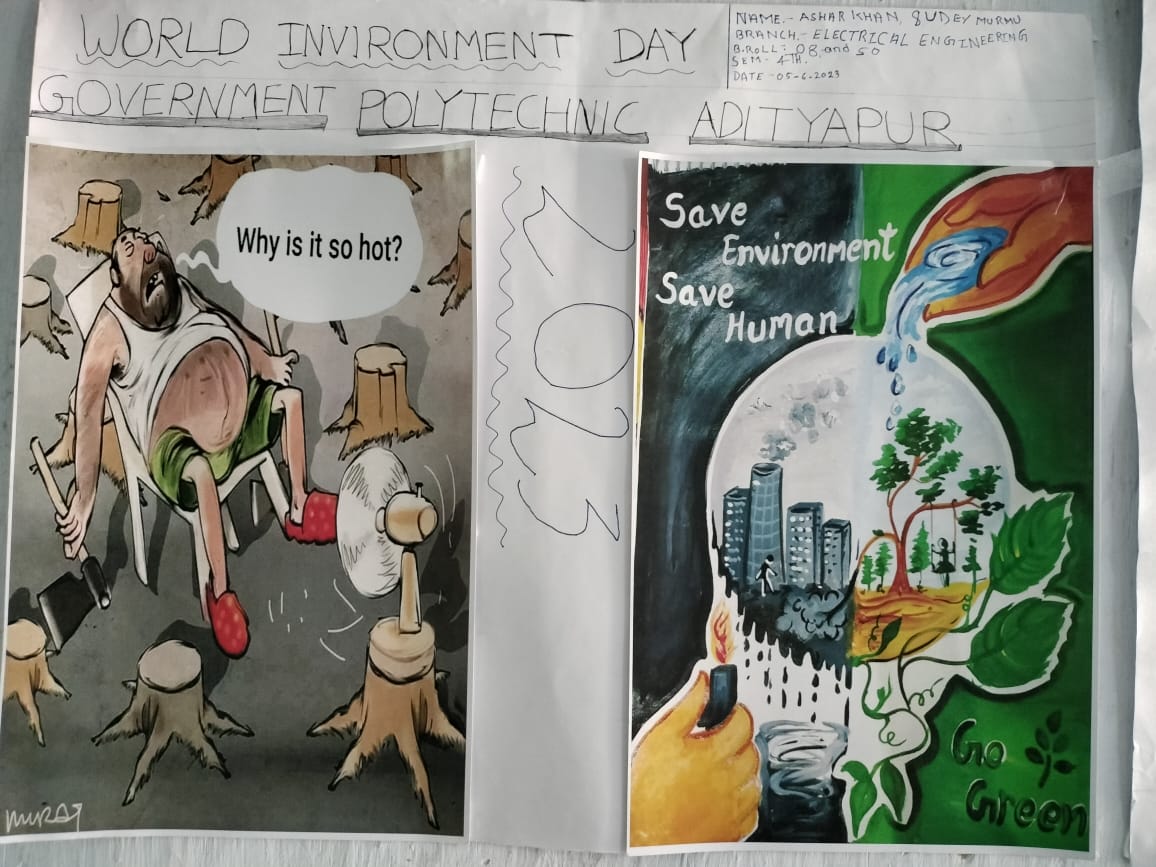 WORLD INVIRONMENT DAY
NAME.- ASHAR KHAN, SUDEY MURMU
BRANCH.- ELECTRICAL ENGINEERING
B.ROLL: 08 and 50
SEM- 4TH.
DATE -05-6-2023
GOVERNMENT POLYTECHNIC ADITYAPUR
Why is it so hot?
2023
Save
Environment
Save
Human
Go
Green
MURAT